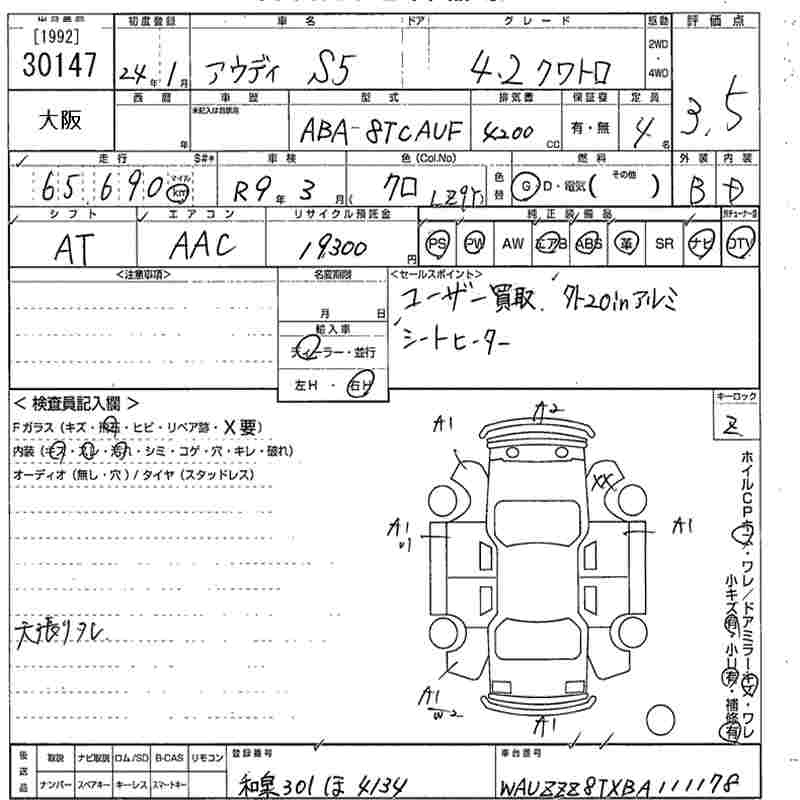 [1992]
30147
初度登録 車名 ドア グレード 駆動 評価点
24年1月 アウディ S5 4.2クワトロ 2WD・4WD 3.5
大阪
西暦 車歴 型式 排気量 保証書 定員
未記入は自家用
年 ABA-8TCAUF 4200 CC 有・無 4名
走行 S#* 車検 色(Col.No) 燃料 外装 内装
65,690 マイル km R9年3月( クロ LZ9Y) 色替 G・D・電気( その他 ) B D
シフト エアコン リサイクル預託金 純正装備品
AT AAC 19300円 PS PW AW エアB ABS 革 SR ナビ DTV
<注意事項> 名変期限 <セールスポイント>
月 日
ユーザー買取、外20inアルミ
輸入車
シートヒーター
ディーラー・並行
左H・右H
<検査員記入欄>
キーロック
Z
Fガラス(キズ・飛石・ヒビ・リペア跡・X要)
内装(キズ・スレ・汚れ・シミ・コゲ・穴・キレ・破れ)
オーディオ(無し・穴)/タイヤ(スタッドレス)
天張りタレ
A1 A2
XX
A1 U1 A1
A1 W2 A1
ホイルCPキズ・ワレ/ドアミラーキズ・ワレ
小キズ有・小U有・補修有
後送品 取説 ナビ取説 ロム/SD B-CAS リモコン
ナンバー スペアキー キーレス スマートキー
登録番号 車台番号
和泉301ほ4134 WAUZZZ8TXBA111178